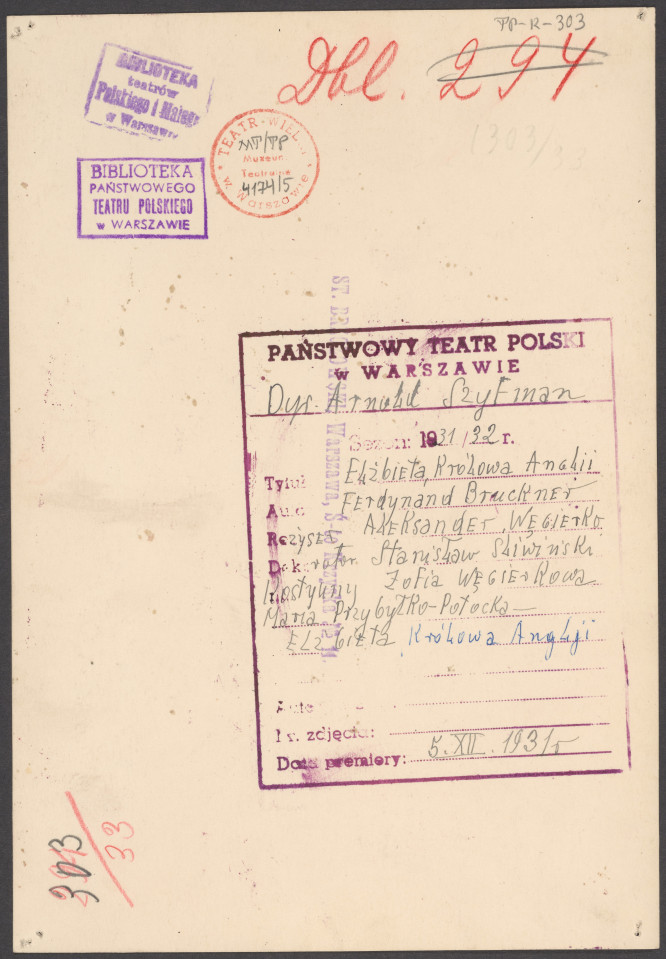 TP-R-303
Dbl. 294
1303/33
BIBLIOTEKA
teatrów
Polskiego i Małego
w Warszawie
TEATR WIEL
MT/TP
Muzeum
Teatralne
4174/5
w Warszawie
BIBLIOTEKA
PAŃSTWOWEGO
TEATRU POLSKIEGO
w WARSZAWIE
Warszawa,
PAŃSTWOWY TEATR POLSKI
w WARSZAWIE
Dyr. Arnold Szyfman
Sezon: 1931/32 r.
Tytuł Elżbieta, Królowa Anglii
Auto Ferdynand Bruckner
Reżyser Aleksander Węgierko
Dekorator Stanisław Śliwiński
Kostiumy Zofia Węgierkowa
Maria Przybyłko-Potocka—
Elżbieta Królowa Anglji
Auto
Nr. zdjęcia:
Data premiery: 5.XII.1931r
303
33